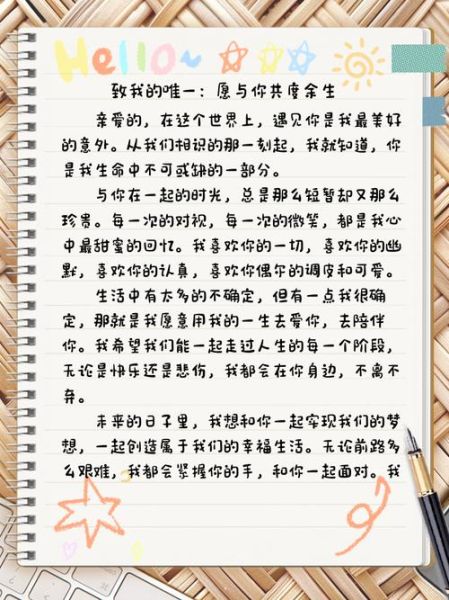 Hello~
致我的唯一：愿与你共度余生
亲爱的，在这个世界上，遇见你是我最美好
的意外。从我们相识的那一刻起，我就知道，你
是我生命中不可或缺的一部分。
与你在一起的时光，总是那么短暂却又那么
珍贵。每一次的对视，每一次的微笑，都是我心
中最甜蜜的回忆。我喜欢你的一切，喜欢你的幽
默，喜欢你的认真，喜欢你偶尔的调皮和可爱。
生活中有太多的不确定，但有一点我很确
定，那就是我愿意用我的一生去爱你，去陪伴
你。我希望我们能一起走过人生的每一个阶段，
无论是快乐还是悲伤，我都会在你身边，不离不
弃。
未来的日子里，我想和你一起实现我们的梦
想，一起创造属于我们的幸福生活。无论前路多
么艰难，我都会紧握你的手，和你一起面对。我